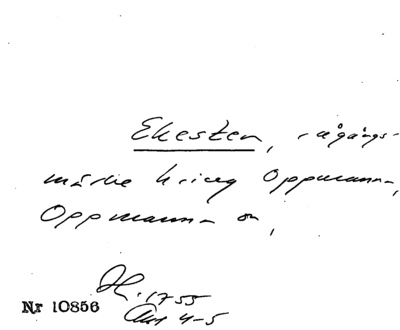 Ekesten, rågångs-
märke kring Oppmanna,
Oppmanna sn,
H. 1755
Nr 10856
4-5